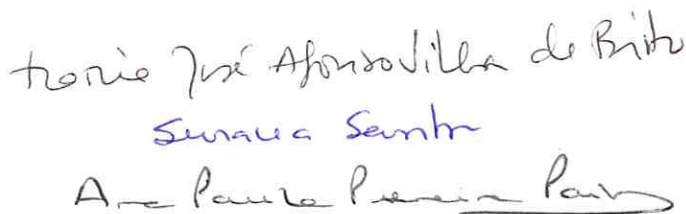 Maria José Afonso Villa de Brito
Susana Santos
Ana Paula Pereira